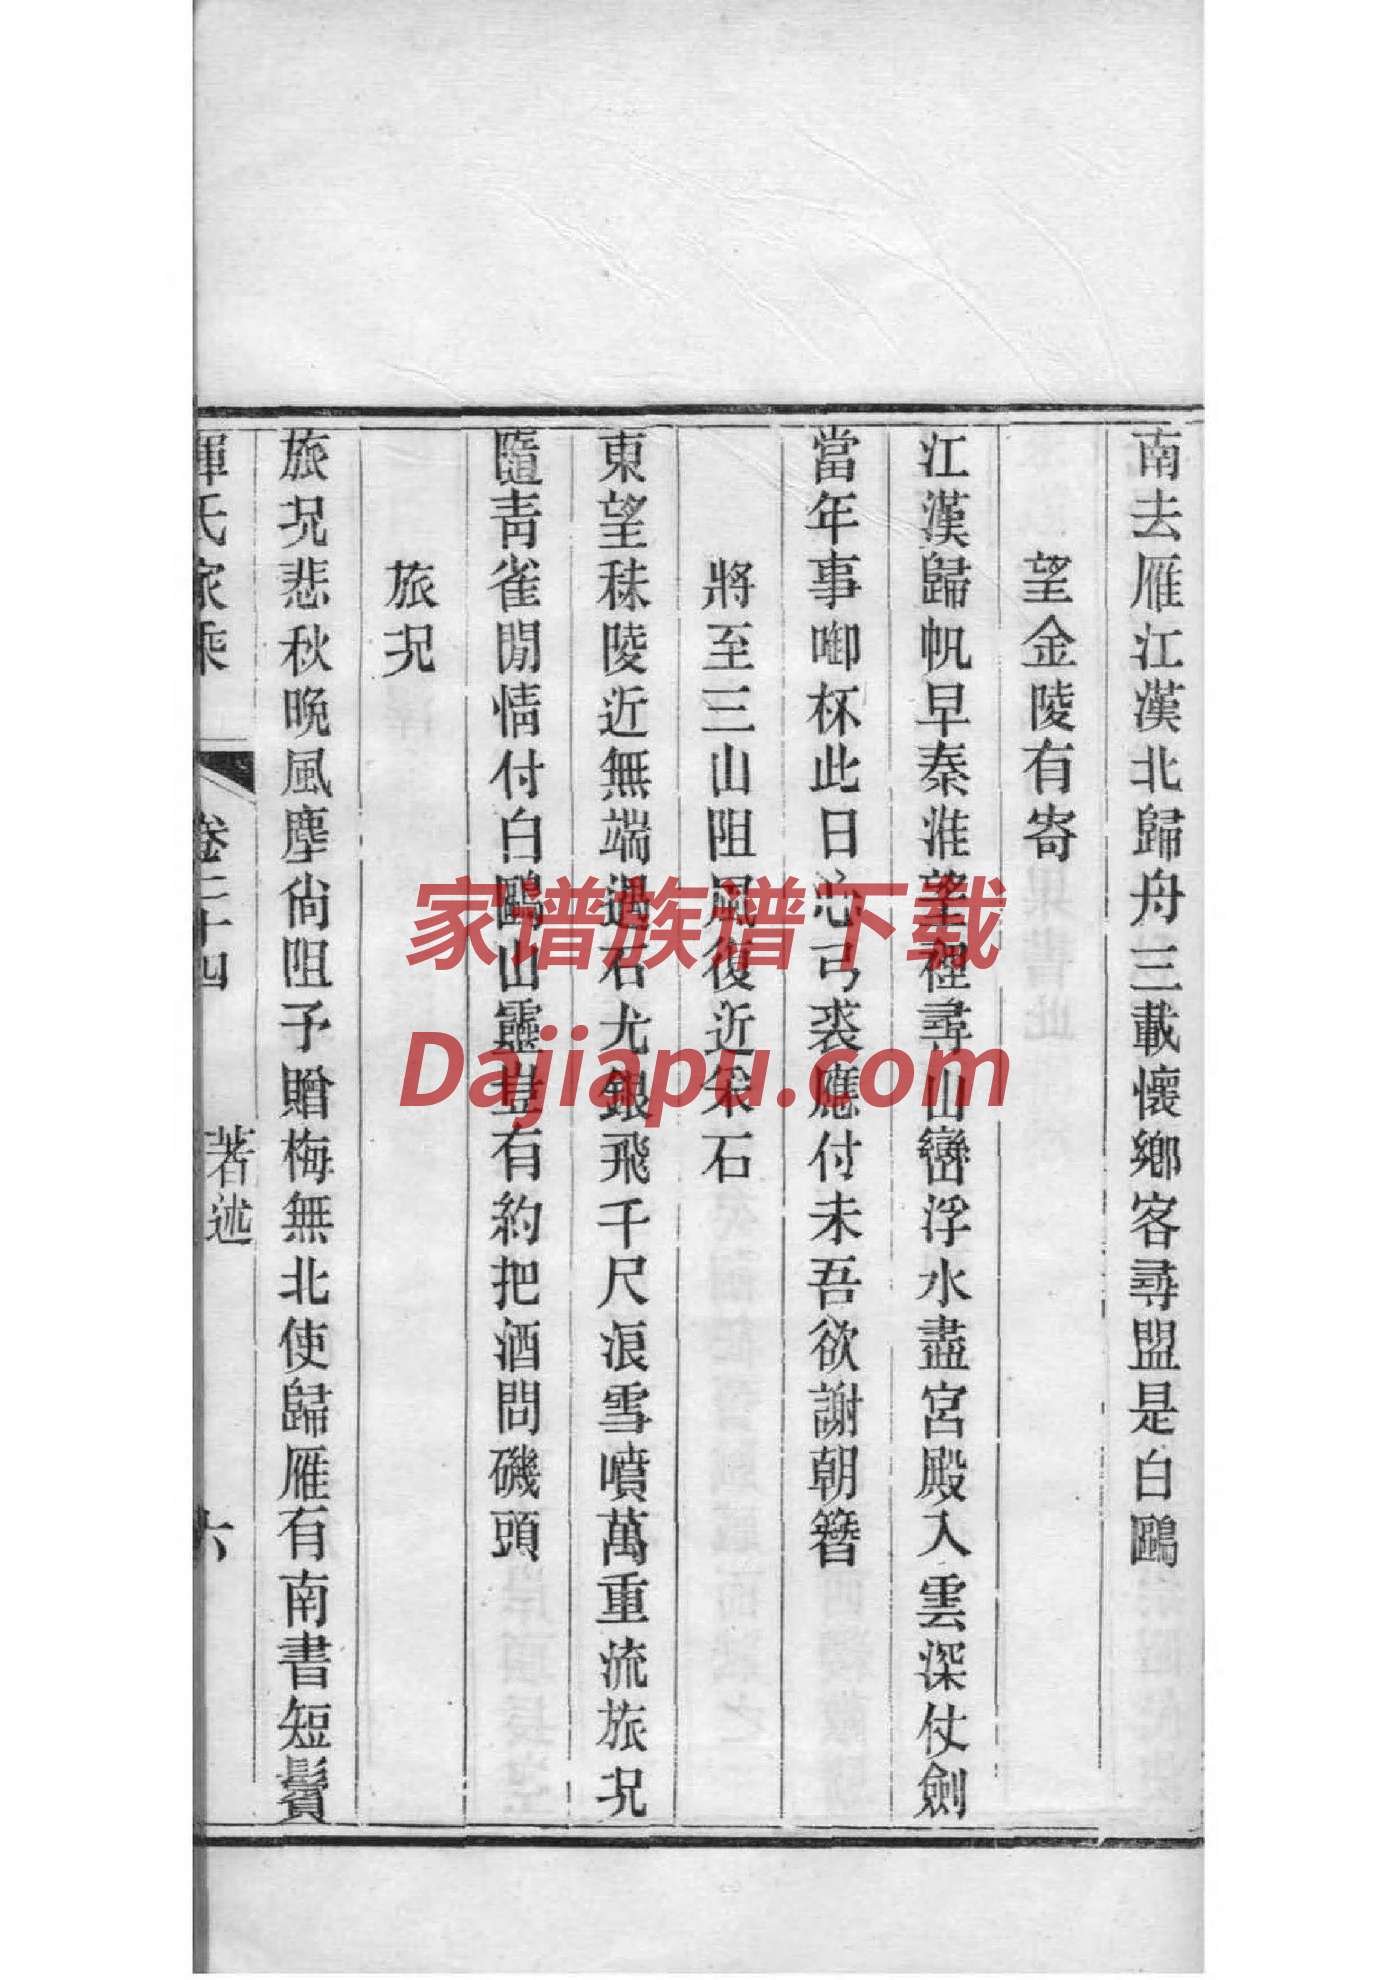 南去雁江漢北歸舟三載懷鄉客尋盟是白鷗
望金陵有寄
江漢歸帆早秦淮望裡尋山巒浮水盡宮殿入雲深仗劍
當年事啣杯此日心弓裘應付未吾欲謝朝簪
將至三山阻風復近采石
東望秣陵近無端遇石尤銀飛千尺浪雪噴萬重流旅況
隨青雀閒情付白鷗山靈豈有約把酒問磯頭
旅況
旅況悲秋晚風塵尙阻予贈梅無北使歸雁有南書短鬢
惲氏家乘
卷二十四
著述
六
家谱族谱下载
Dajiapu.com